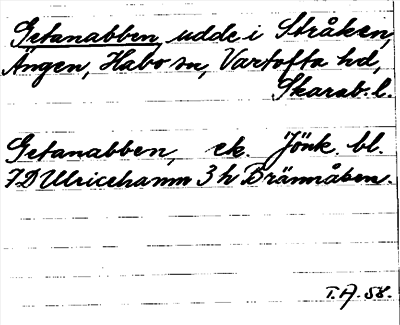 Getanabben, udde i Stråken,
Ängen, Habo sn, Vartofta hd,
Skarab. l.
Getanabben, ek. Jönk. bl.
7D Ulricehamn 3 h Brännåsen.
T. A. 58.